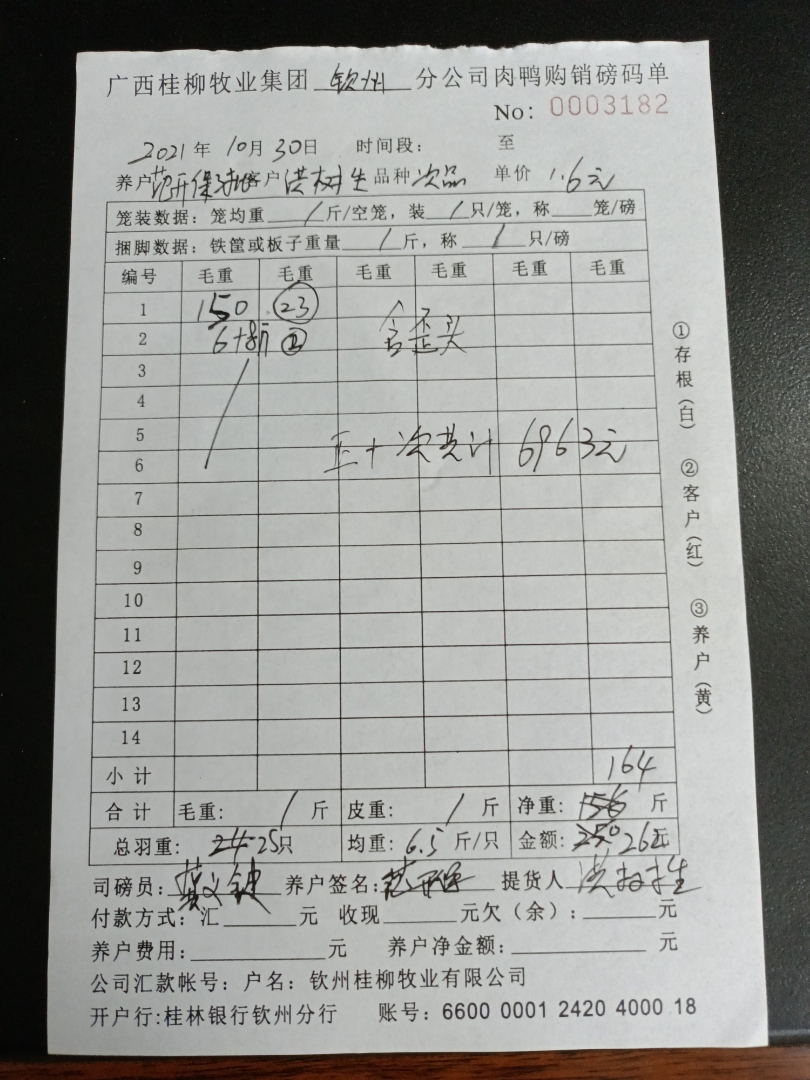 广西桂柳牧业集团 钦州 分公司肉鸭购销磅码单
No: 0003182
2021年10月30日 时间段： 至
养户 范开保 客户 洪树生 品种 次品 单价 1.6元
笼装数据：笼均重 / 斤/空笼，装 / 只/笼，称 笼/磅
捆脚数据：铁筐或板子重量 / 斤，称 / 只/磅
编号 毛重 毛重 毛重 毛重 毛重 毛重
1 150 23
2 6+8斤 2 含歪头
3
4
5
正+次共计 6963元
6
7
8
9
10
11
12
13
14
小计 164
合计 毛重： / 斤 皮重： / 斤 净重： 156 斤
总羽重： 24 25只 均重： 6.5 斤/只 金额： 250 262元
司磅员： 养户签名：范开保 提货人 洪树生
付款方式：汇 元 收现 元欠（余）： 元
养户费用： 元 养户净金额： 元
公司汇款帐号：户名：钦州桂柳牧业有限公司
开户行:桂林银行钦州分行 账号：6600 0001 2420 4000 18
①存根（白） ②客户（红） ③养户（黄）